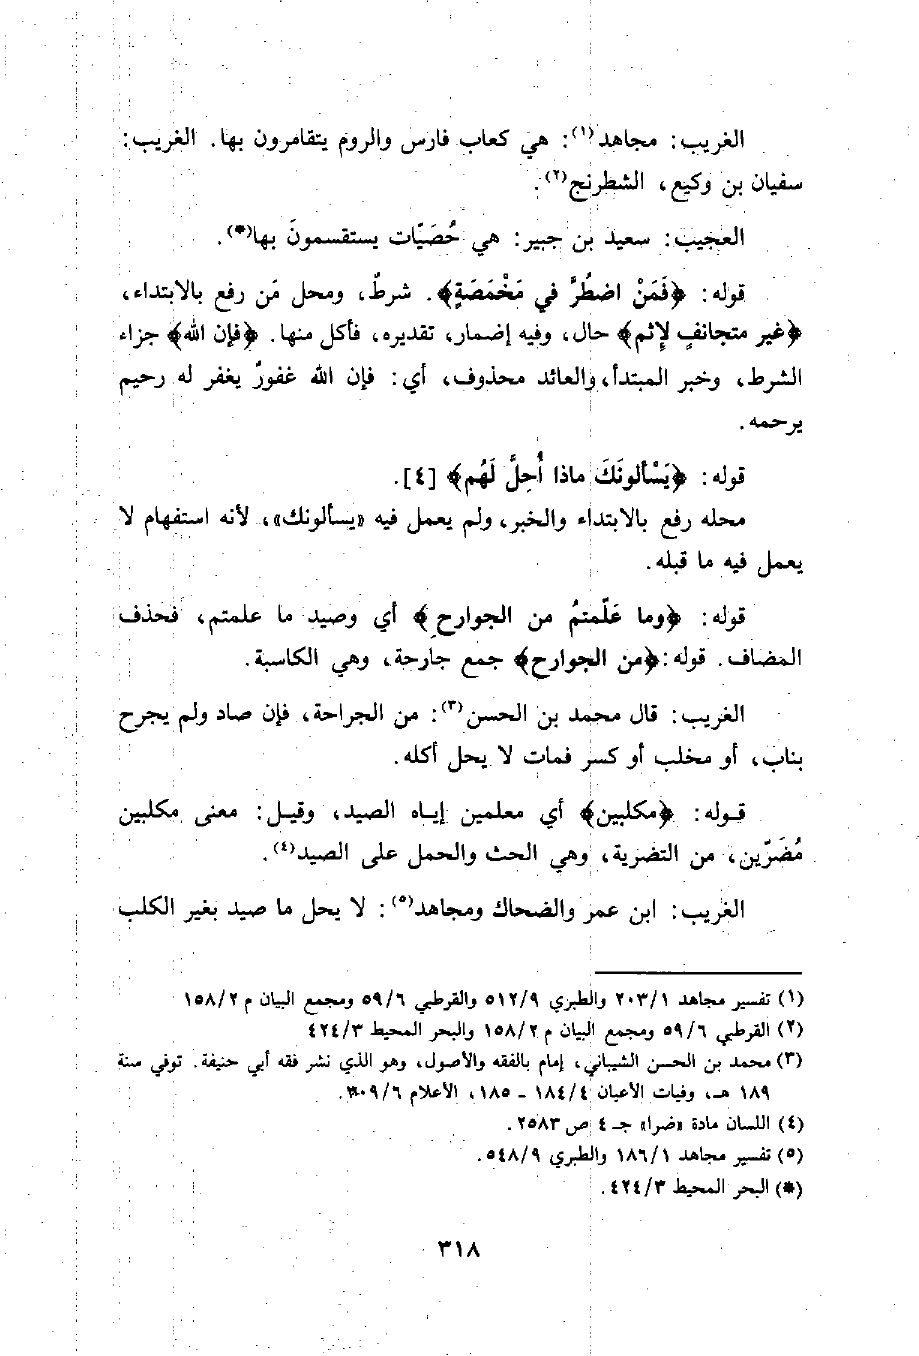 الغريب: مجاهد(١): هي كعاب فارس والروم يتقامرون بها. الغريب:
سفيان بن وكيع، الشطرنج(٢).
العجيب: سعيد بن جبير: هي حُصَيّات يستقسمونَ بها(*).
قوله: ﴿فَمَنْ اضطُرَّ في مَخْمَصَةٍ﴾. شرطٌ، ومحل مَن رفع بالابتداء،
﴿غير متجانفٍ لإثم﴾ حال، وفيه إضمار، تقديره، فأكل منها. ﴿فإن الله﴾ جزاء
الشرط، وخبر المبتدأ، والعائد محذوف، أي: فإن الله غفورٌ يغفر له رحيم
يرحمه.
قوله: ﴿يَسْألونَكَ ماذا أُحِلَّ لَهُم﴾ [٤].
محله رفع بالابتداء والخبر، ولم يعمل فيه «يسألونك»، لأنه استفهام لا
يعمل فيه ما قبله.
قوله: ﴿وما عَلّمتمُ من الجوارحِ﴾ أي وصيد ما علمتم، فحذف
المضاف. قوله: ﴿من الجوارح﴾ جمع جارحة، وهي الكاسبة.
الغريب: قال محمد بن الحسن(٣): من الجراحة، فإن صاد ولم يجرح
بناب، أو مخلب أو كسر فمات لا يحل أكله.
قوله: ﴿مكلبين﴾ أي معلمين إياه الصيد، وقيل: معنى مكلبين
مُضَرّين، من التضرية، وهي الحث والحمل على الصيد(٤).
الغريب: ابن عمر والضحاك ومجاهد(٥): لا يحل ما صيد بغير الكلب
(١) تفسير مجاهد ٢٠٣/١ والطبري ٥١٢/٩ والقرطبي ٥٩/٦ ومجمع البيان م ١٥٨/٢
(٢) القرطبي ٥٩/٦ ومجمع البيان م ١٥٨/٢ والبحر المحيط ٤٢٤/٣
(٣) محمد بن الحسن الشيباني، إمام بالفقه والأصول، وهو الذي نشر فقه أبي حنيفة. توفي سنة
١٨٩ هـ، وفيات الأعيان ١٨٤/٤ - ١٨٥، الأعلام
(٤) اللسان مادة «ضرا» جـ ٤ ص ٢٥٨٣.
(٥) تفسير مجاهد ١٨٦/١ والطبري ٥٤٨/٩.
(*) البحر المحيط ٤٢٤/٣.
٣١٨